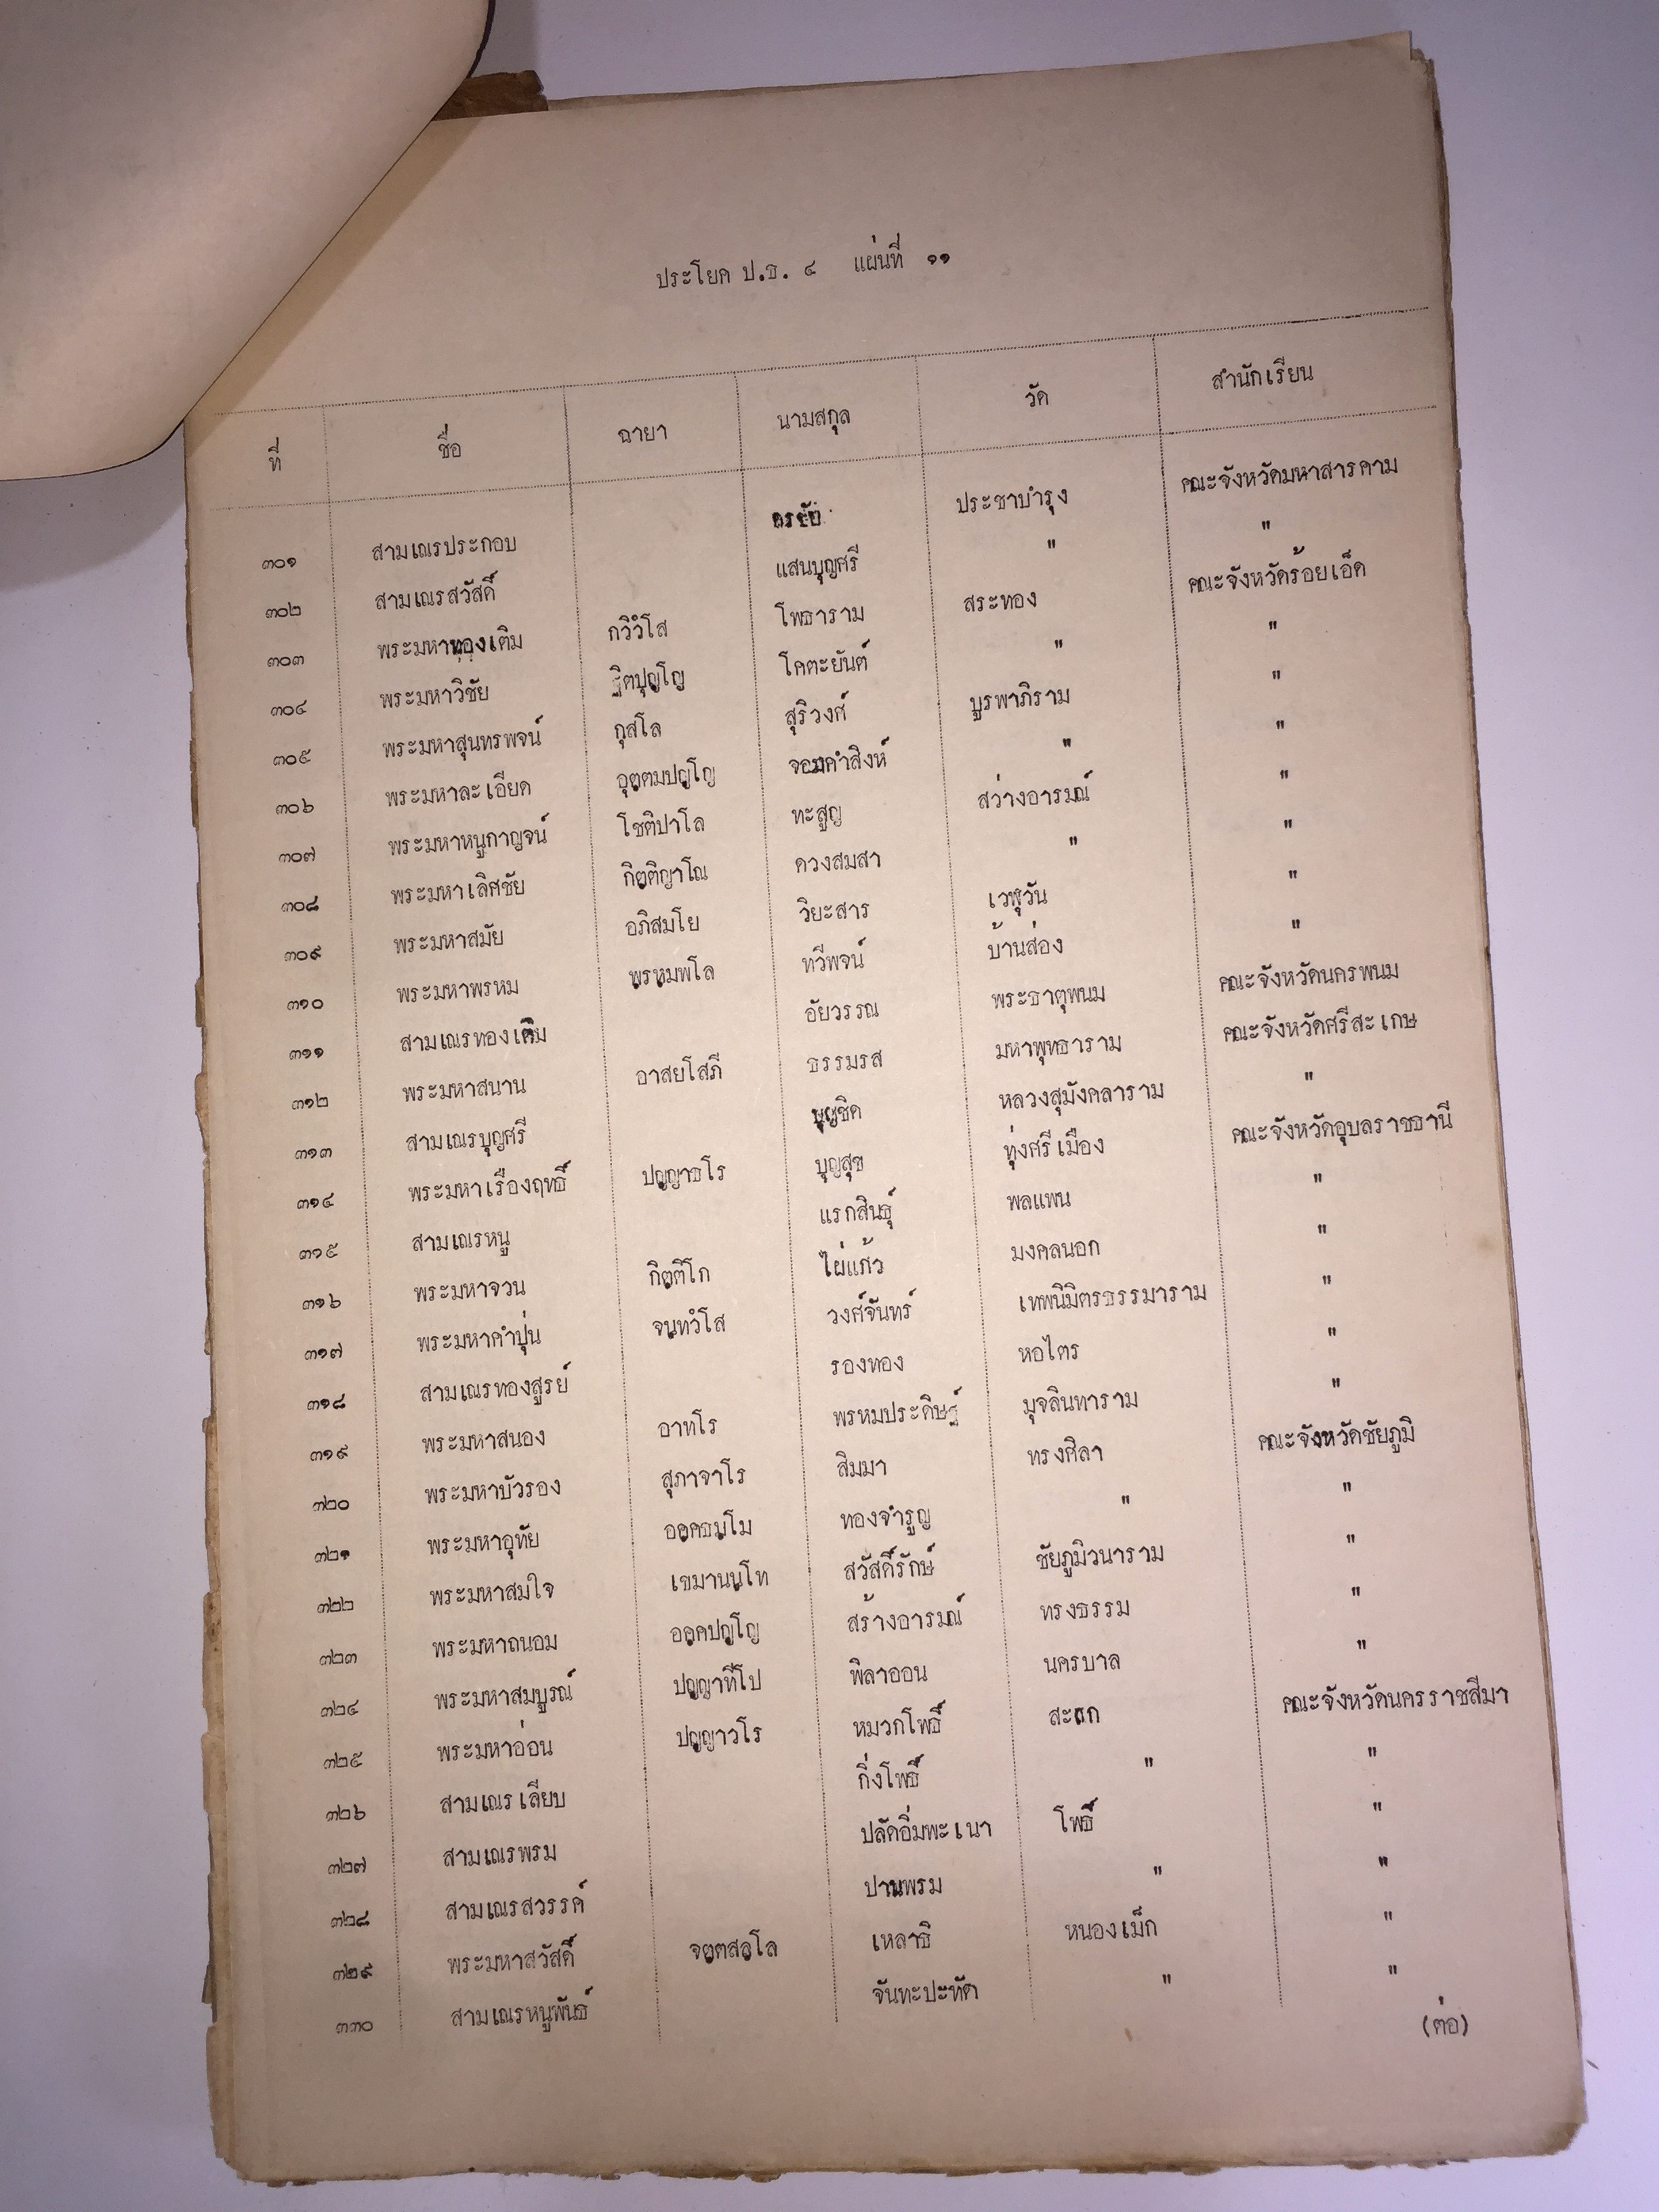 ประโยค ป.ธ. ๔ แผ่นที่ ๑๑
ที่ ชื่อ ฉายา นามสกุล วัด สำนักเรียน
๓๐๑ สามเณรประกอบ ประชาบำรุง คณะจังหวัดมหาสารคาม
๓๐๒ สามเณรสวัสดิ์ แสนบุญศรี " "
๓๐๓ พระมหาทองเติม กวิวํโส โพธาราม สระทอง คณะจังหวัดร้อยเอ็ด
๓๐๔ พระมหาวิชัย ฐิตปุญฺโญ โคตะยันต์ " "
๓๐๕ พระมหาสุนทรพจน์ กุสโล สุริวงศ์ บูรพาภิราม "
๓๐๖ พระมหาละเอียด อุตฺตมปญฺโญ จอมคำสิงห์ " "
๓๐๗ พระมหาหนูกาญจน์ โชติปาโล ทะสูญ สว่างอารมณ์ "
๓๐๘ พระมหาเลิศชัย กิตฺติญาโณ ดวงสมสา " "
๓๐๙ พระมหาสมัย อภิสมโย วิยะสาร เวฬุวัน "
๓๑๐ พระมหาพรหม พฺรหฺมพโล ทวีพจน์ บ้านส่อง "
๓๑๑ สามเณรทองเติม อัยวรรณ พระธาตุพนม คณะจังหวัดนครพนม
๓๑๒ พระมหาสนาน อาสยโสภี ธรรมรส มหาพุทธาราม คณะจังหวัดศรีสะเกษ
๓๑๓ สามเณรบุญศรี บุญชิด หลวงสุมังคลาราม "
๓๑๔ พระมหาเรืองฤทธิ์ ปญฺญาธโร บุญสุข ทุ่งศรีเมือง คณะจังหวัดอุบลราชธานี
๓๑๕ สามเณรหนู แรกสินธุ์ พลแพน "
๓๑๖ พระมหาจวน กิตฺติโก ไผ่แก้ว มงคลนอก "
๓๑๗ พระมหาคำปุ่น จนฺทวํโส วงศ์จันทร์ เทพนิมิตรธรรมาราม "
๓๑๘ สามเณรทองสูรย์ รองทอง หอไตร "
๓๑๙ พระมหาสนอง อาทโร พรหมประดิษฐ์ มุจลินทาราม "
๓๒๐ พระมหาบัวรอง สุภาจาโร สิมมา ทรงศิลา คณะจังหวัดชัยภูมิ
๓๒๑ พระมหาอุทัย อคฺคธมฺโม ทองจำรูญ " "
๓๒๒ พระมหาสมใจ เขมานนฺโท สวัสดิ์รักษ์ ชัยภูมิวนาราม "
๓๒๓ พระมหาถนอม อคฺคปญฺโญ สร้างอารมณ์ ทรงธรรม "
๓๒๔ พระมหาสมบูรณ์ ปญฺญาทีโป พิลาออน นครบาล "
๓๒๕ พระมหาอ่อน ปญฺญาวโร หมวกโพธิ์ สะแก คณะจังหวัดนครราชสีมา
๓๒๖ สามเณรเลียบ กิ่งโพธิ์ " "
๓๒๗ สามเณรพรม ปลัดอิ่มพะเนา โพธิ์ "
๓๒๘ สามเณรสวรรค์ ปานพรม " "
๓๒๙ พระมหาสวัสดิ์ จตฺตสลฺโล เหลาธิ หนองเม็ก "
๓๓๐ สามเณรหนูพันธ์ จันทะปะทัด " "
(ต่อ)